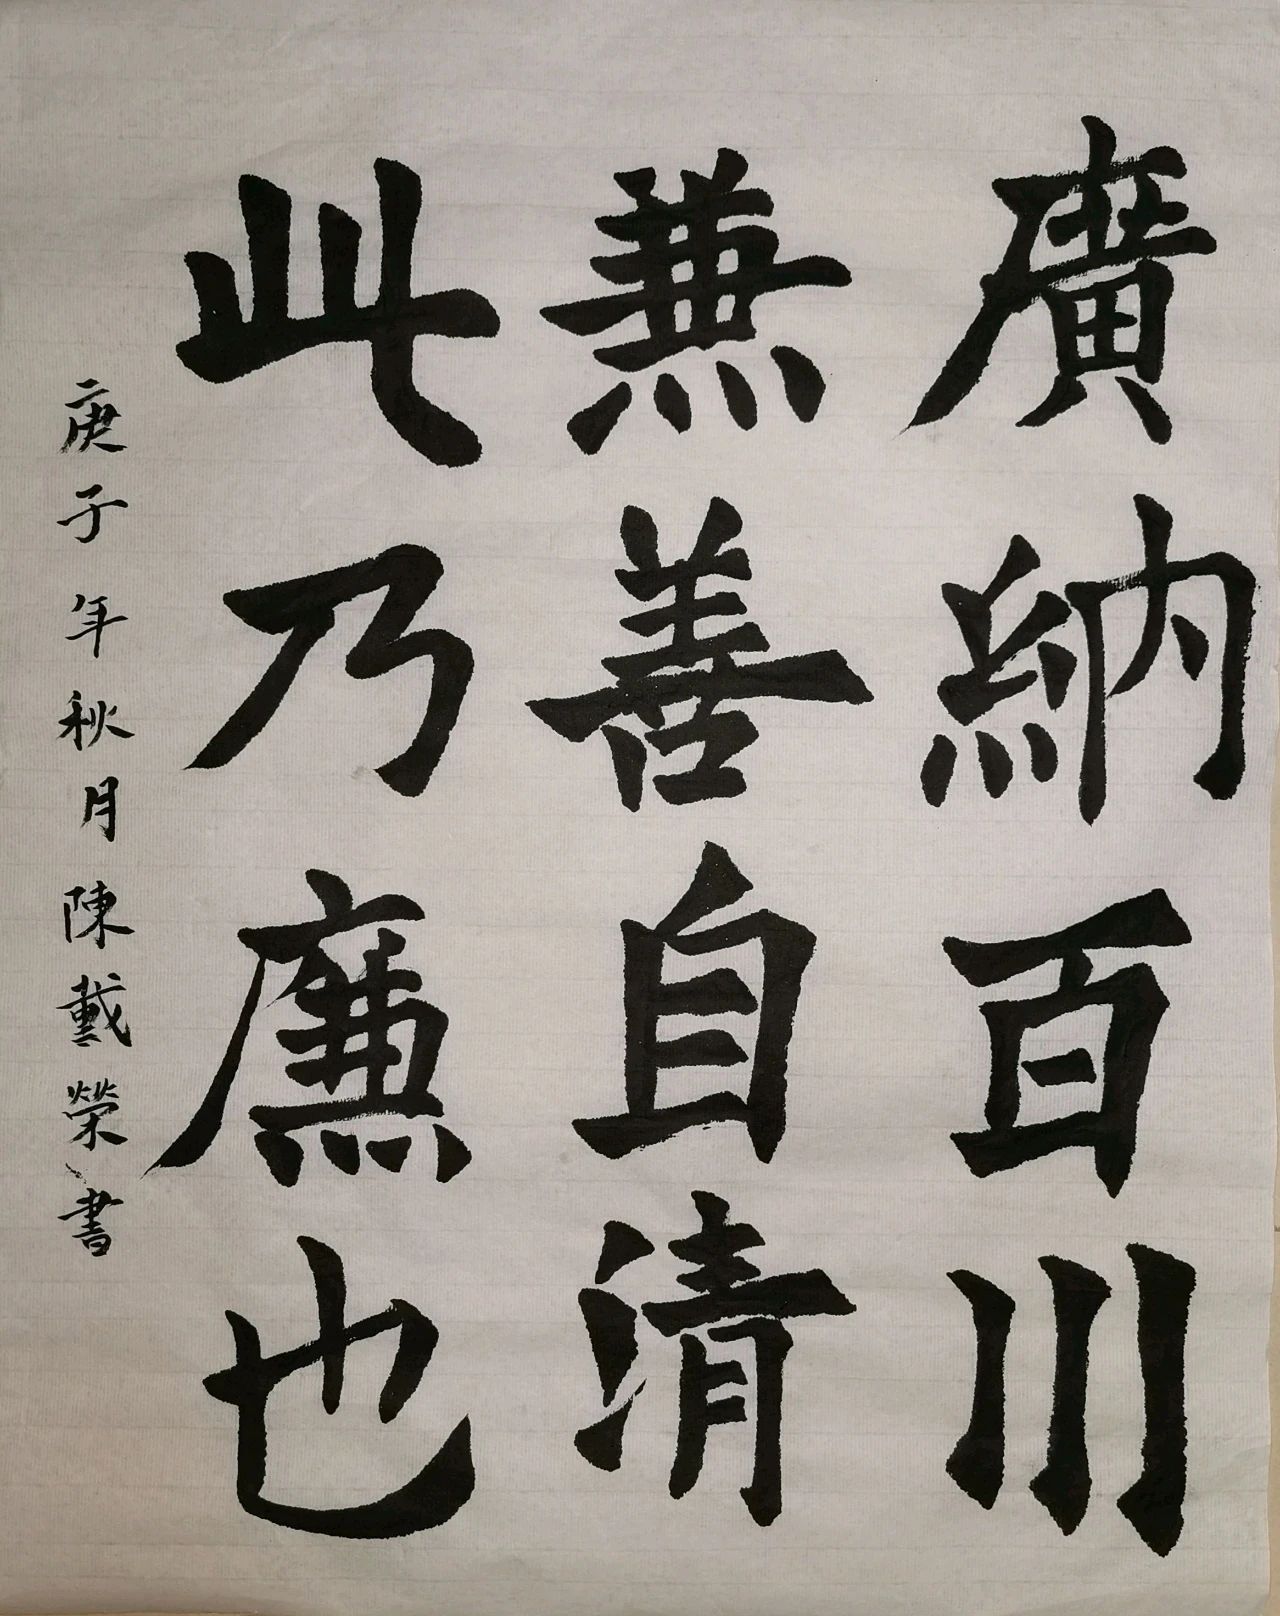 廣納百川
兼善自清
此乃廉也
庚子年秋月陳戴榮書